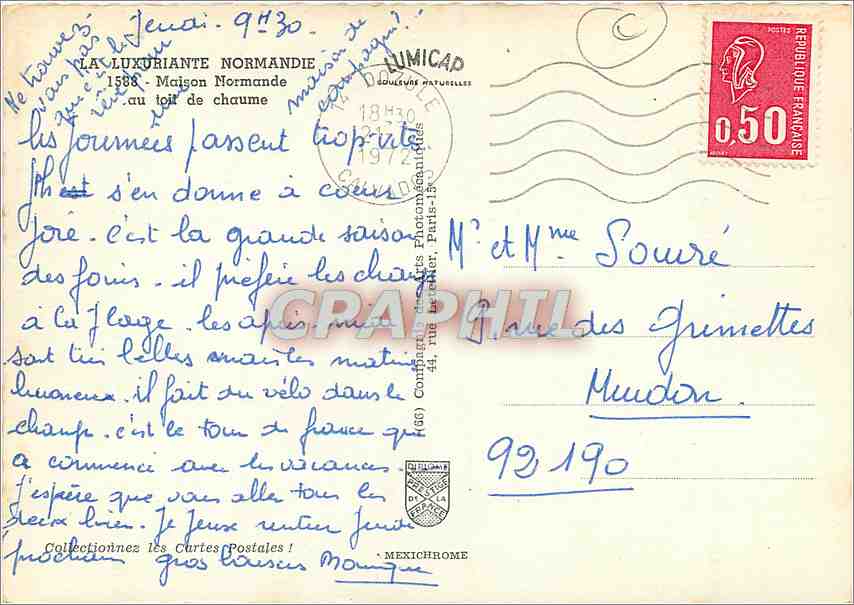 Jeudi - 9H30.
LA LUXURIANTE NORMANDIE
1588 - Maison Normande
au toit de chaume
Ne trouvez
vous pas
maison de
campagne?
LUMICAP
COULEURS NATURELLES
14 DOZULE
18H30
1972
CALVADOS
POSTES
REPUBLIQUE FRANÇAISE
0,50
les journées passent trop vite.
s'en donne à coeur
joie. C'est la grande saison
des foins. il préfère les champs
à la plage. les après-midi
sont très belles mais les matins
brumeux. il fait du vélo dans le
champ. c'est le tour de france qui
a commencé avec les vacances.
J'espère que vous allez tous les
deux bien. Je pense rentrer Jeudi
prochain gros baisers Monique
Mr et Mme Souré
9, rue des Grimettes
Meudon.
92190
(66) Compagnie des Arts Photomécaniques
44, rue Letellier, Paris-15e
CRAPHIL
DIPLOME
PRESTIGE
DE LA
FRANCE
Collectionnez les Cartes Postales !
MEXICHROME